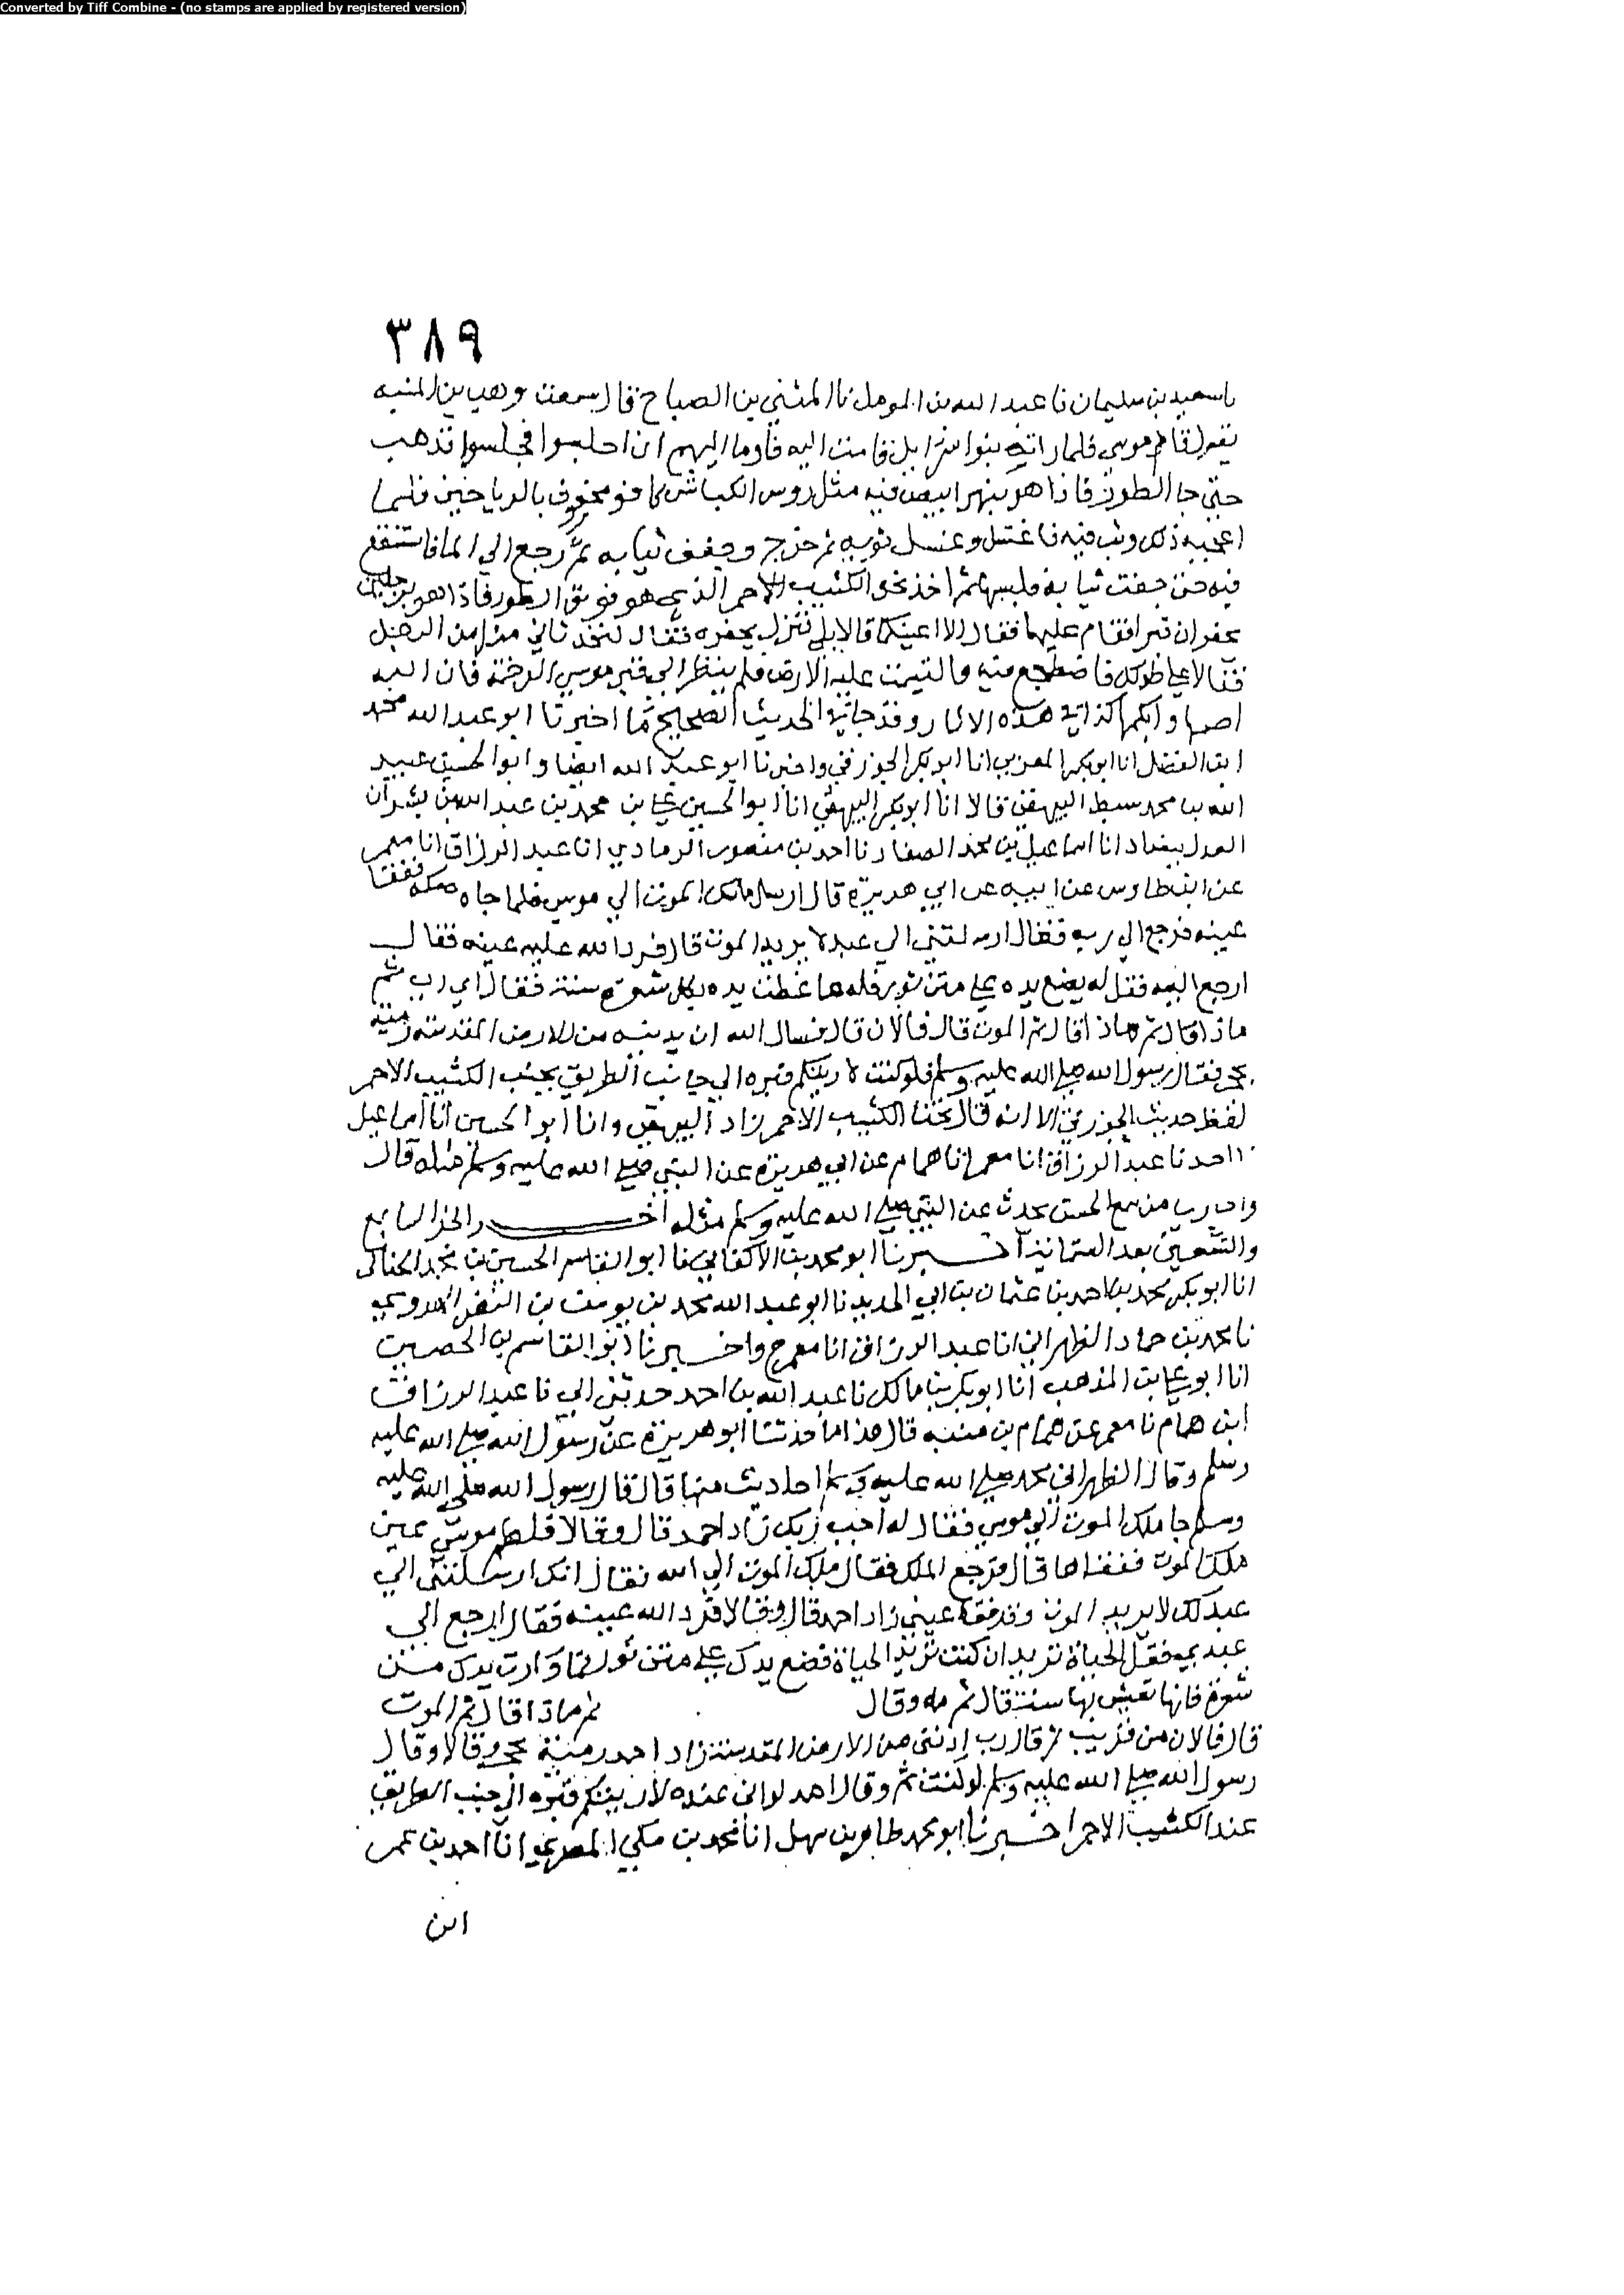 Converted by Tiff Combine - (no stamps are applied by registered version)
٣٨٩
نا سعيد بن سليمان نا عبد الله بن المومل نا المثنى بن الصباح قال سمعت وهب بن المنبه
يقول قام موسى فلما راته بنوا اسرايل قامت اليه فاوما اليهم ان اجلسوا فجلسوا تذهب
حتى جا الطور فاذا هو بنهر ابيض فيه مثل روس الكباش كافور محفوف بالرياحين فلما
اعجبه ذلك وثب فيه فاغتسل وغسل ثوبه ثم خرج وجفف ثيابه ثم رجع الى الما فاستنقع
فيه حتى جفت ثيابه فلبسها ثم اخذ نحو الكثيب الاحمر الذي هو فوق الطور فاذا هو برجلين
يحفران قبرا فقام عليهما فقال الا اعينكما قالا بلى فنزل يحفره فقال لتحدثاني مثل من الرجل
فقالا على طولك فاضطجع فيه والتيمت عليه الارض فلم ينظر الى قبر موسى الا الرخمة فان الله
اصمها وابكمها كذا في هذه الاثار وقد جا في الحديث الصحيح ما اخبرنا ابو عبد الله محمد
ابن الفضل انا ابو بكر المغربي انا ابو بكر الجوزقي واخبرنا ابو عبد الله ايضا وابو الحسين عبيد
الله بن محمد سبط البيهقي قالا انا ابو بكر البيهقي انا ابو الحسين علي بن محمد بن عبد الله بن بشران
العدل ببغداد انا اسماعيل بن محمد الصفار نا احمد بن منصور الرمادي انا عبد الرزاق انا معمر
عن ابن طاوس عن ابيه عن ابي هريرة قال ارسل ملك الموت الى موسى فلما جاه صكه ففقا
عينه فرجع الى ربه فقال ارسلتني الى عبد لا يريد الموت قال فرد الله عليه عينه فقال
ارجع اليه فقل له يضع يده على متن ثور فله بما غطت يده بكل شعرة سنة فقال اي رب ثم
ماذا قال ثم ماذا قال ثم الموت قال فالان قال فسال الله ان يدنيه من الارض المقدسة رمية
بحجر فقال رسول الله صلى الله عليه وسلم فلو كنت لاريتكم قبره الى جانب الطريق بجنب الكثيب الاحمر
لفظ حديث الجوزقي الا انه قال تحت الكثيب الاحمر زاد البيهقي وانا ابو الحسين انا اسماعيل
نا احمد نا عبد الرزاق انا معمر انا همام عن ابي هريرة عن النبي صلى الله عليه وسلم مثله قال
واخبرني من سمع الحسن يحدث عن النبي صلى الله عليه وسلم مثله آخر الجز السابع
والتسعين بعد الثمانية اخبرنا ابو محمد بن الاكفاني نا ابو القاسم الحسين بن محمد الحنائي
انا ابو بكر محمد بن احمد بن عثمان بن ابي الحديد نا ابو عبد الله محمد بن يوسف بن النضر الهروي
نا محمد بن حماد الظهراني انا عبد الرزاق انا معمر ح واخبرنا ابو القاسم بن الحصين
انا ابو علي بن المذهب انا ابو بكر بن مالك نا عبد الله بن احمد حدثني ابي نا عبد الرزاق
ابن همام نا معمر عن همام بن منبه قال هذا ما حدثنا ابو هريرة عن رسول الله صلى الله عليه
وسلم وقال الظهراني محمد صلى الله عليه وسلم احاديث منها قال قال رسول الله صلى الله عليه
وسلم جا ملك الموت الى موسى فقال له اجب ربك زاد احمد قال وقالا فلطم موسى عين
ملك الموت ففقاها قال فرجع الملك فقال ملك الموت الى الله فقال انك ارسلتني الى
عبد لك لا يريد الموت وقد فقا عيني زاد احمد قال وقالا فرد الله عينه فقال ارجع الى
عبدي فقل الحياة تريد ان كنت تريد الحياة فضع يدك على متن ثور فما وارت يدك من
شعرة فانها تعيش بها سنة قال ثم مه وقال ثم ماذا قال ثم الموت
قال فالان من قريب ثم قال رب ادنني من الارض المقدسة زاد احمد رمية بحجر وقالا وقال
رسول الله صلى الله عليه وسلم لو كنت ثم وقال احمد لو اني عنده لاريتكم قبره الى جنب الطريق
عند الكثيب الاحمر اخبرنا ابو محمد طاهر بن سهل انا محمد بن مكي المصري انا احمد بن عمر
ابن